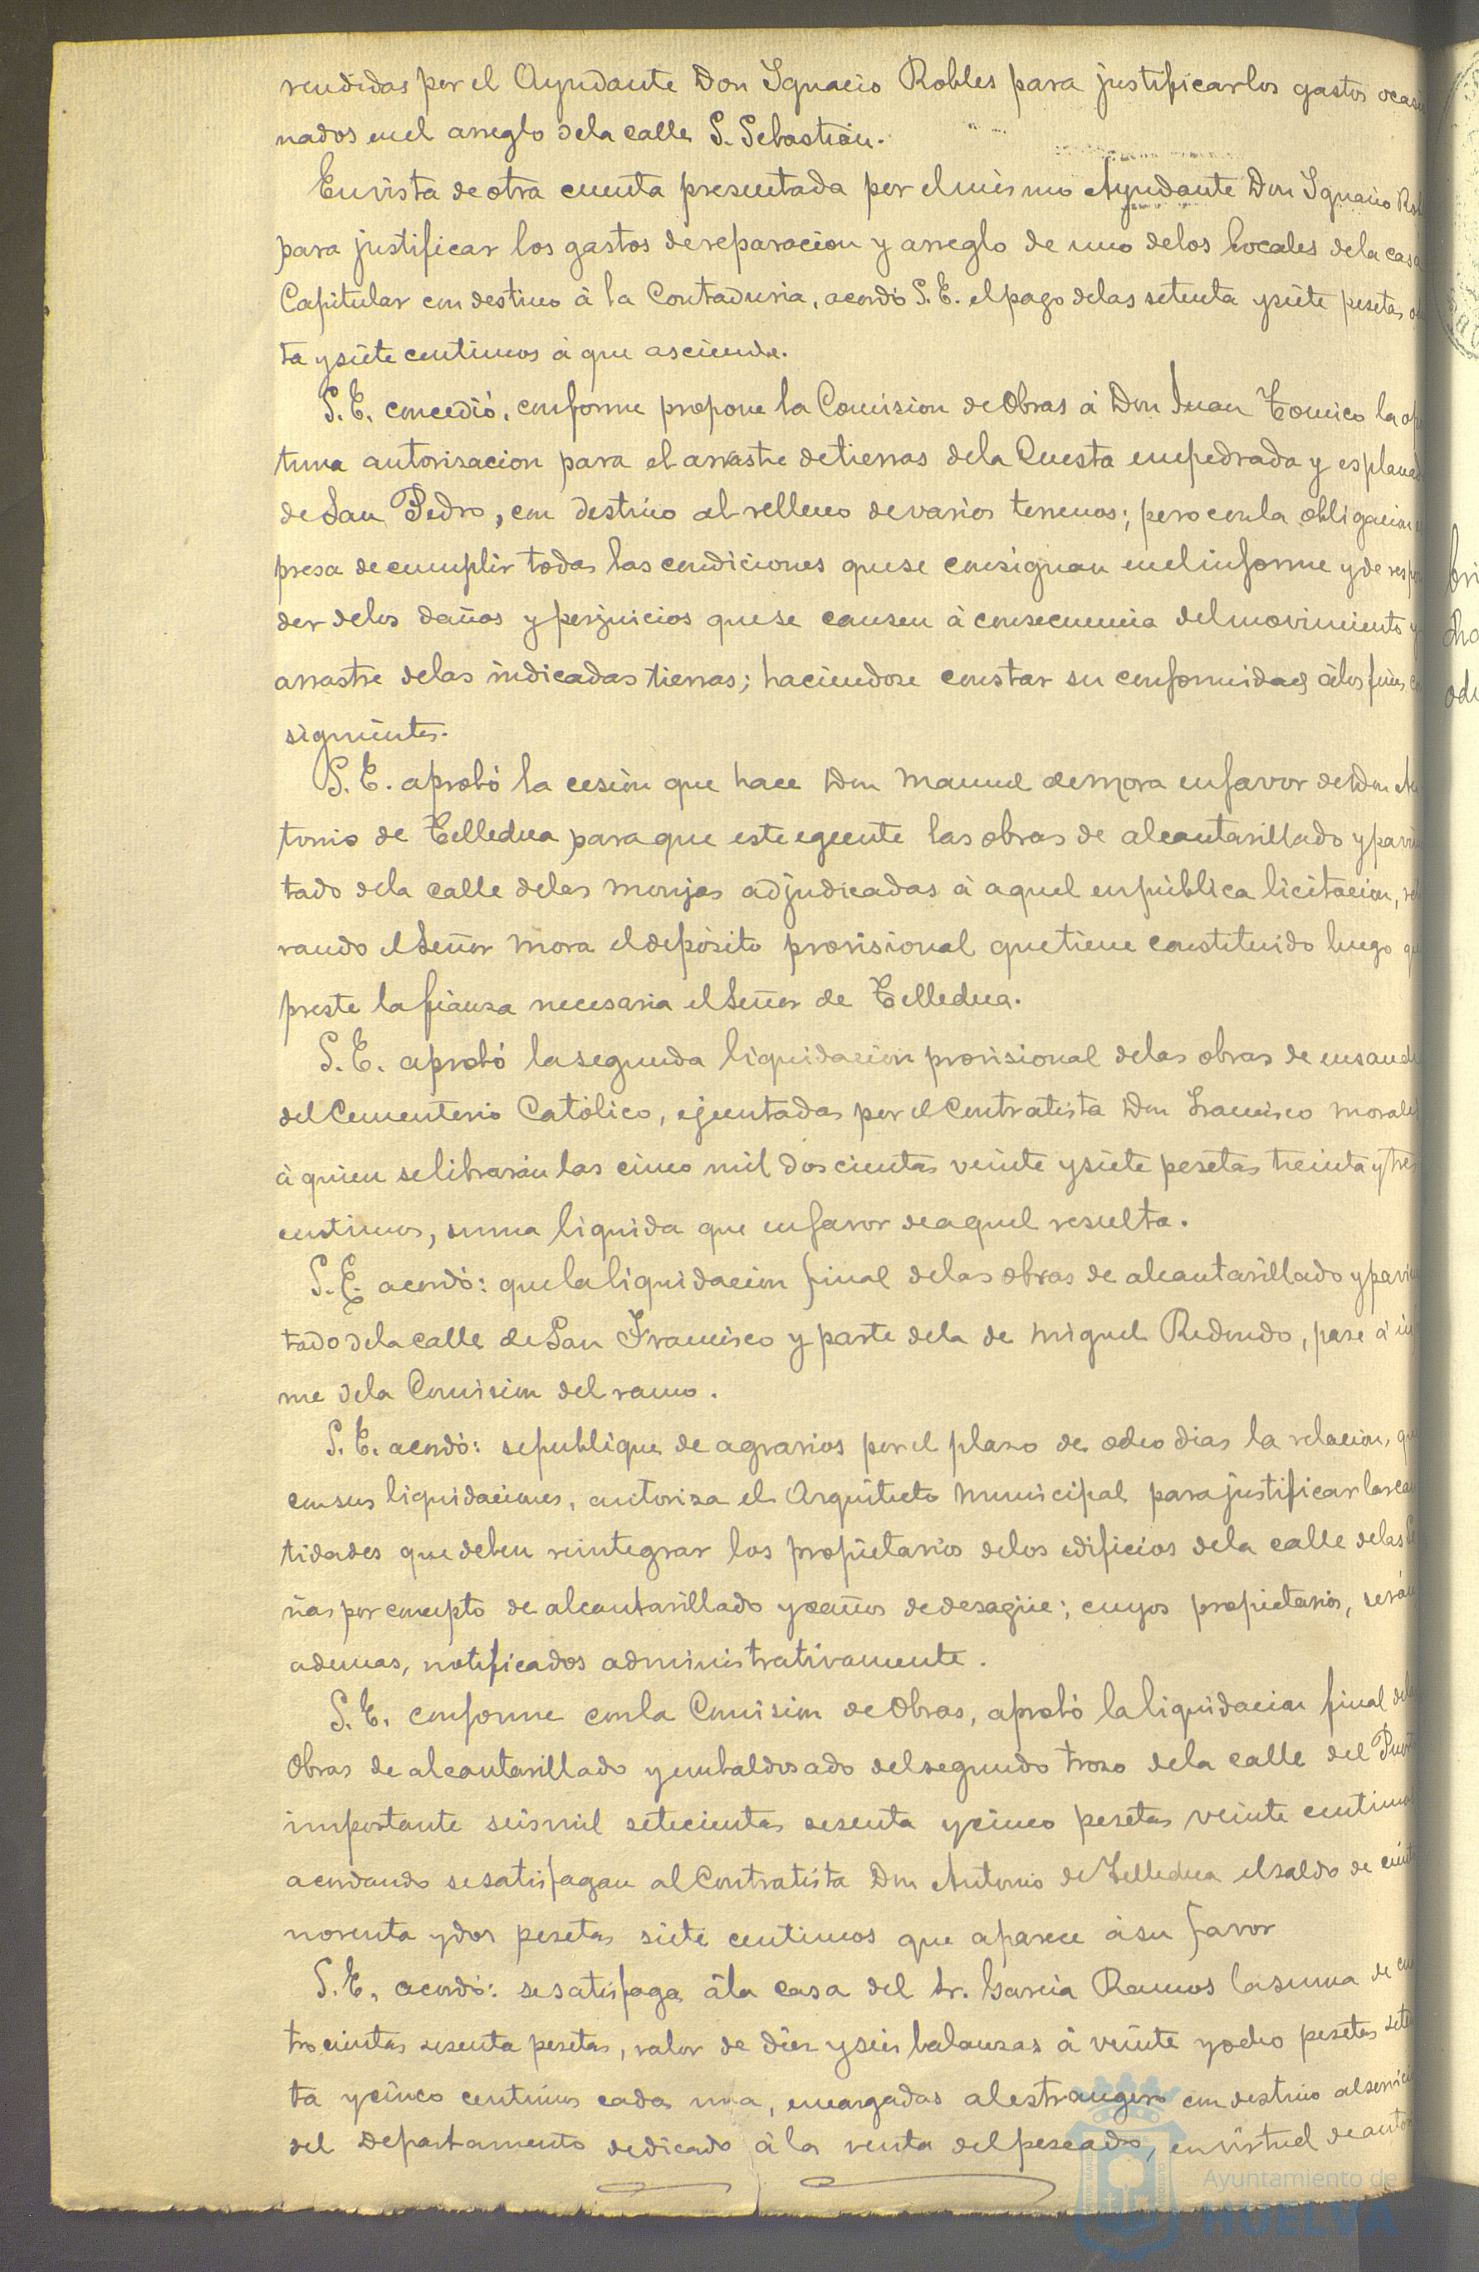 rendidas por el Ayudante Don Ignacio Robles para justificar los gastos ocasio
nados en el arreglo de la calle S. Sebastián.
En vista de otra cuenta presentada por el mismo Ayudante Don Ignacio Rob
para justificar los gastos de reparacion y arreglo de uno de los locales de la casa
Capitular con destino á la Contaduria, acordó S. E. el pago de las setenta y siete pesetas
ta y siete centimos á que asciende.
S. E. concedió, conforme propone la Comision de Obras á Don Juan Tomico la opor
tuna autorisacion para el arrastre de tierras de la Cuesta empedrada y esplanad
de San Pedro, con destino al relleno de varios terrenos; pero con la obligacion
presa de cumplir todas las condiciones que se consignan en el informe y de respon
der de los daños y perjuicios que se causen á consecuencia del movimiento y
arrastre de las indicadas tierras; haciendose constar su conformidad á los fines con
siguientes.
S. E. aprobó la cesión que hace Don Manuel de Mora en favor de Don An
tonio de Tellechea para que este egecute las obras de alcantarillado y pavi
tado de la calle de las Monjas adjudicadas á aquel en pública licitacion, reti
rando el Señor Mora el depósito provisional que tiene constituido luego que
preste la fianza necesaria el Señor de Tellechea.
S. E. aprobó la segunda liquidacion provisional de las obras de ensanche
del Cementerio Católico, ejecutadas por el Contratista Don Francisco Morales
á quien se librarán las cinco mil doscientas veinte y siete pesetas treinta y tres
centimos, suma liquida que en favor de aquel resulta.
S. E. acordó: que la liquidacion final de las obras de alcantarillado y pavi
tado de la calle de San Francisco y parte de la de Miguel Redondo, pase á in
me de la Comision del ramo.
S. E. acordó: se publique de agravios por el plazo de ocho dias la relacion, que
con sus liquidaciones, autoriza el Arquitecto Municipal para justificar las can
tidades que deben reintegrar los propietarios de los edificios de la calle de las
ñas por concepto de alcantarillado y caños de desagüe; cuyos propietarios, serán
ademas, notificados administrativamente.
S. E. conforme con la Comision de Obras, aprobó la liquidacion final de las
Obras de alcantarillado y embaldosado del segundo trozo de la calle del Puerto
importante seis mil setecientas sesenta y cinco pesetas veinte centimos
acordando se satisfagan al Contratista Don Antonio de Tellechea el saldo de ciento
noventa y dos pesetas siete centimos que aparece á su favor
S. E. acordó: se satisfaga á la casa del Sr. Garcia Ramos la suma de cua
trocientas sesenta pesetas, valor de diez y seis balanzas á veinte y ocho pesetas seten
ta y cinco centimos cada una, encargadas al estrangero con destino al servicio
del Departamento dedicado á la venta del pescado, en virtud de auto
Ayuntamiento de
HUELVA